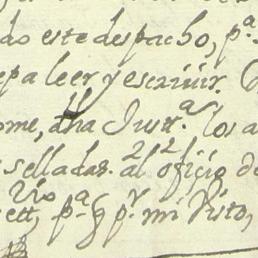 do este despacho, p.ª
epa leer y escriuir.
ome, dha Justr.ª los a
selladas. al oficio de
p.ª q̃ p.r mi Visto,